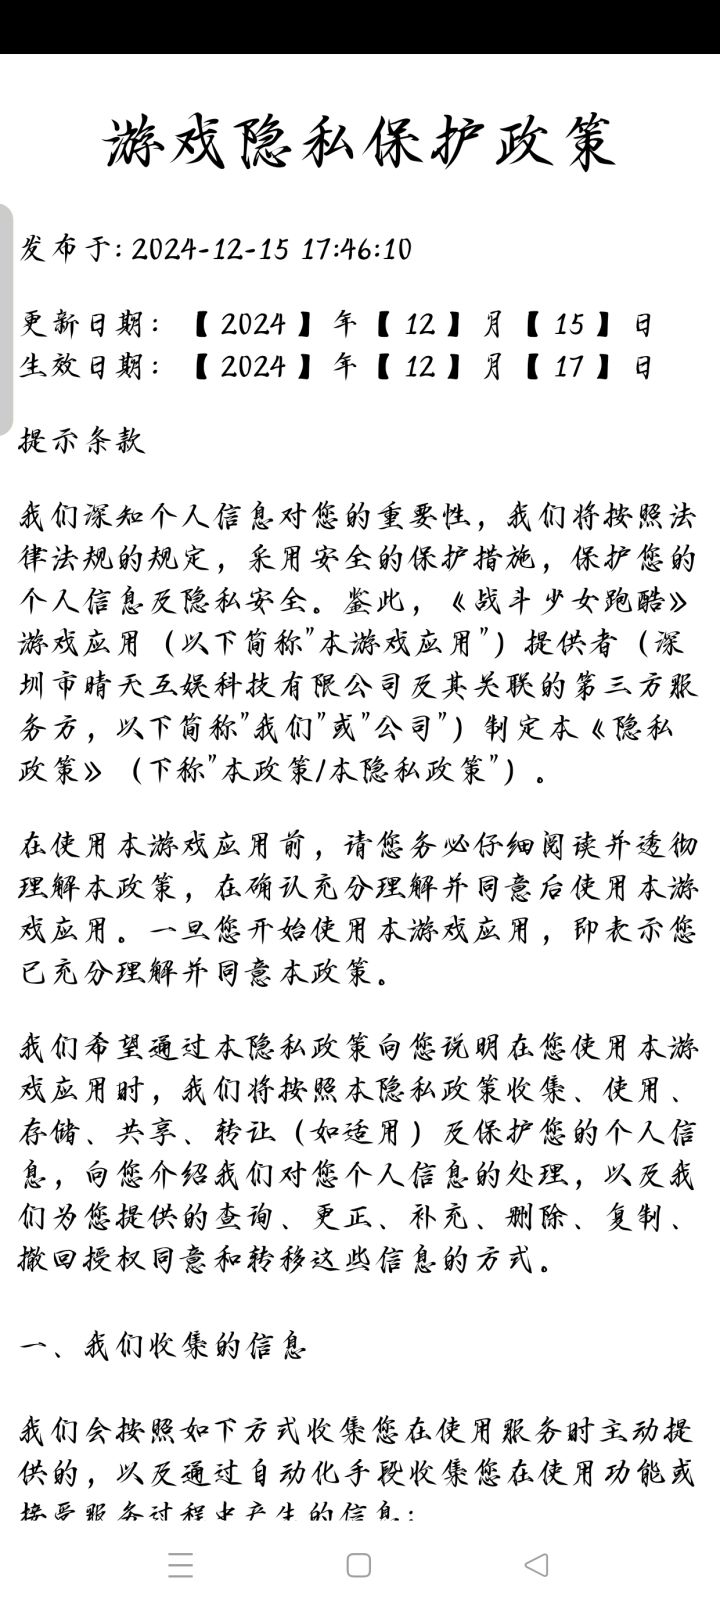 游戏隐私保护政策
发布于: 2024-12-15 17:46:10
更新日期：【 2024 】 年 【 12 】 月 【 15 】 日
生效日期：【 2024 】 年 【 12 】 月 【 17 】 日
提示条款
我们深知个人信息对您的重要性，我们将按照法
律法规的规定，采用安全的保护措施，保护您的
个人信息及隐私安全。鉴此，《战斗少女跑酷》
游戏应用（以下简称"本游戏应用"）提供者（深
圳市晴天互娱科技有限公司及其关联的第三方服
务方，以下简称"我们"或"公司"）制定本《隐私
政策》（下称"本政策/本隐私政策"）。
在使用本游戏应用前，请您务必仔细阅读并透彻
理解本政策，在确认充分理解并同意后使用本游
戏应用。一旦您开始使用本游戏应用，即表示您
已充分理解并同意本政策。
我们希望通过本隐私政策向您说明在您使用本游
戏应用时，我们将按照本隐私政策收集、使用、
存储、共享、转让（如适用）及保护您的个人信
息，向您介绍我们对您个人信息的处理，以及我
们为您提供的查询、更正、补充、删除、复制、
撤回授权同意和转移这些信息的方式。
一、我们收集的信息
我们会按照如下方式收集您在使用服务时主动提
供的，以及通过自动化手段收集您在使用功能或
接受服务过程中产生的信息：